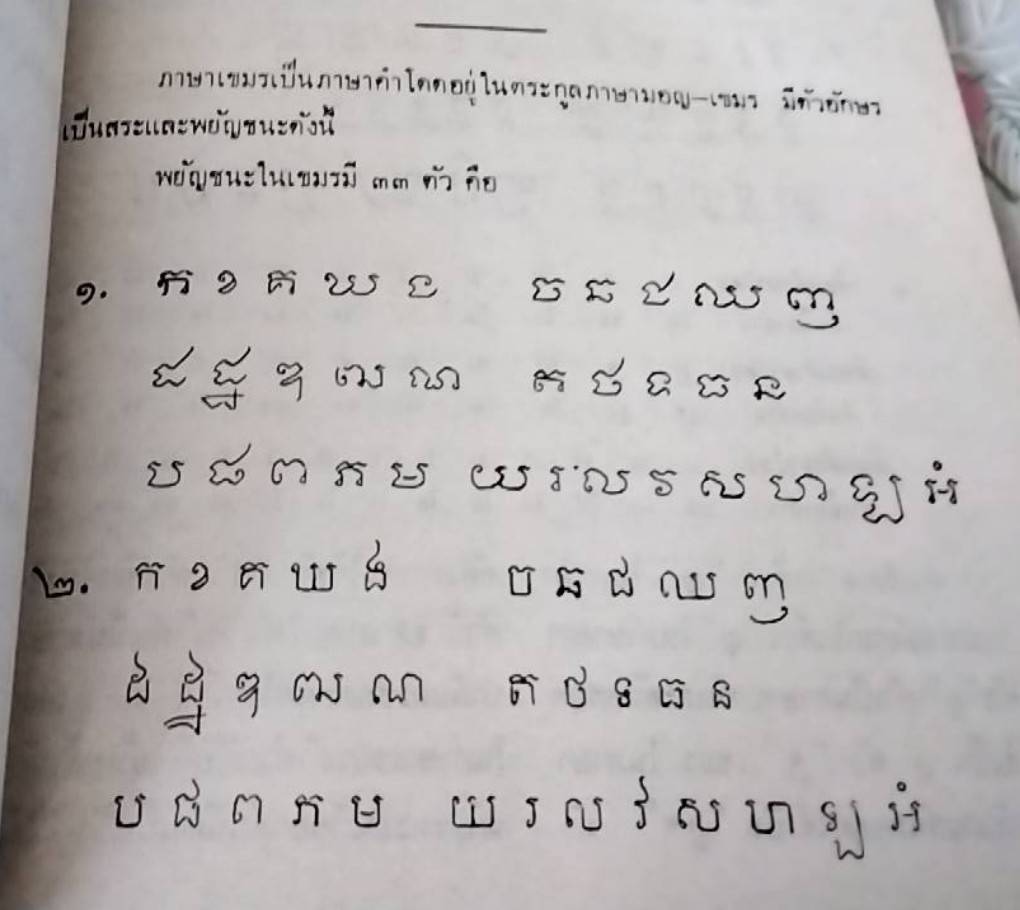 ภาษาเขมรเป็นภาษาคำโดดอยู่ในตระกูลภาษามอญ-เขมร มีตัวอักษร
เป็นสระและพยัญชนะดังนี้
พยัญชนะในเขมรมี ๓๓ ตัว คือ
๑. ក ខ គ ឃ ង ច ឆ ជ ឈ ញ
ដ ឋ ឌ ឍ ណ ត ថ ទ ធ ន
ប ផ ព ភ ម យ រ ល វ ស ហ ឡ អំ
๒. ក ខ គ ឃ ង ច ឆ ជ ឈ ញ
ដ ឋ ឌ ឍ ណ ត ថ ទ ធ ន
ប ផ ព ភ ម យ រ ល វ ស ហ ឡ អំ